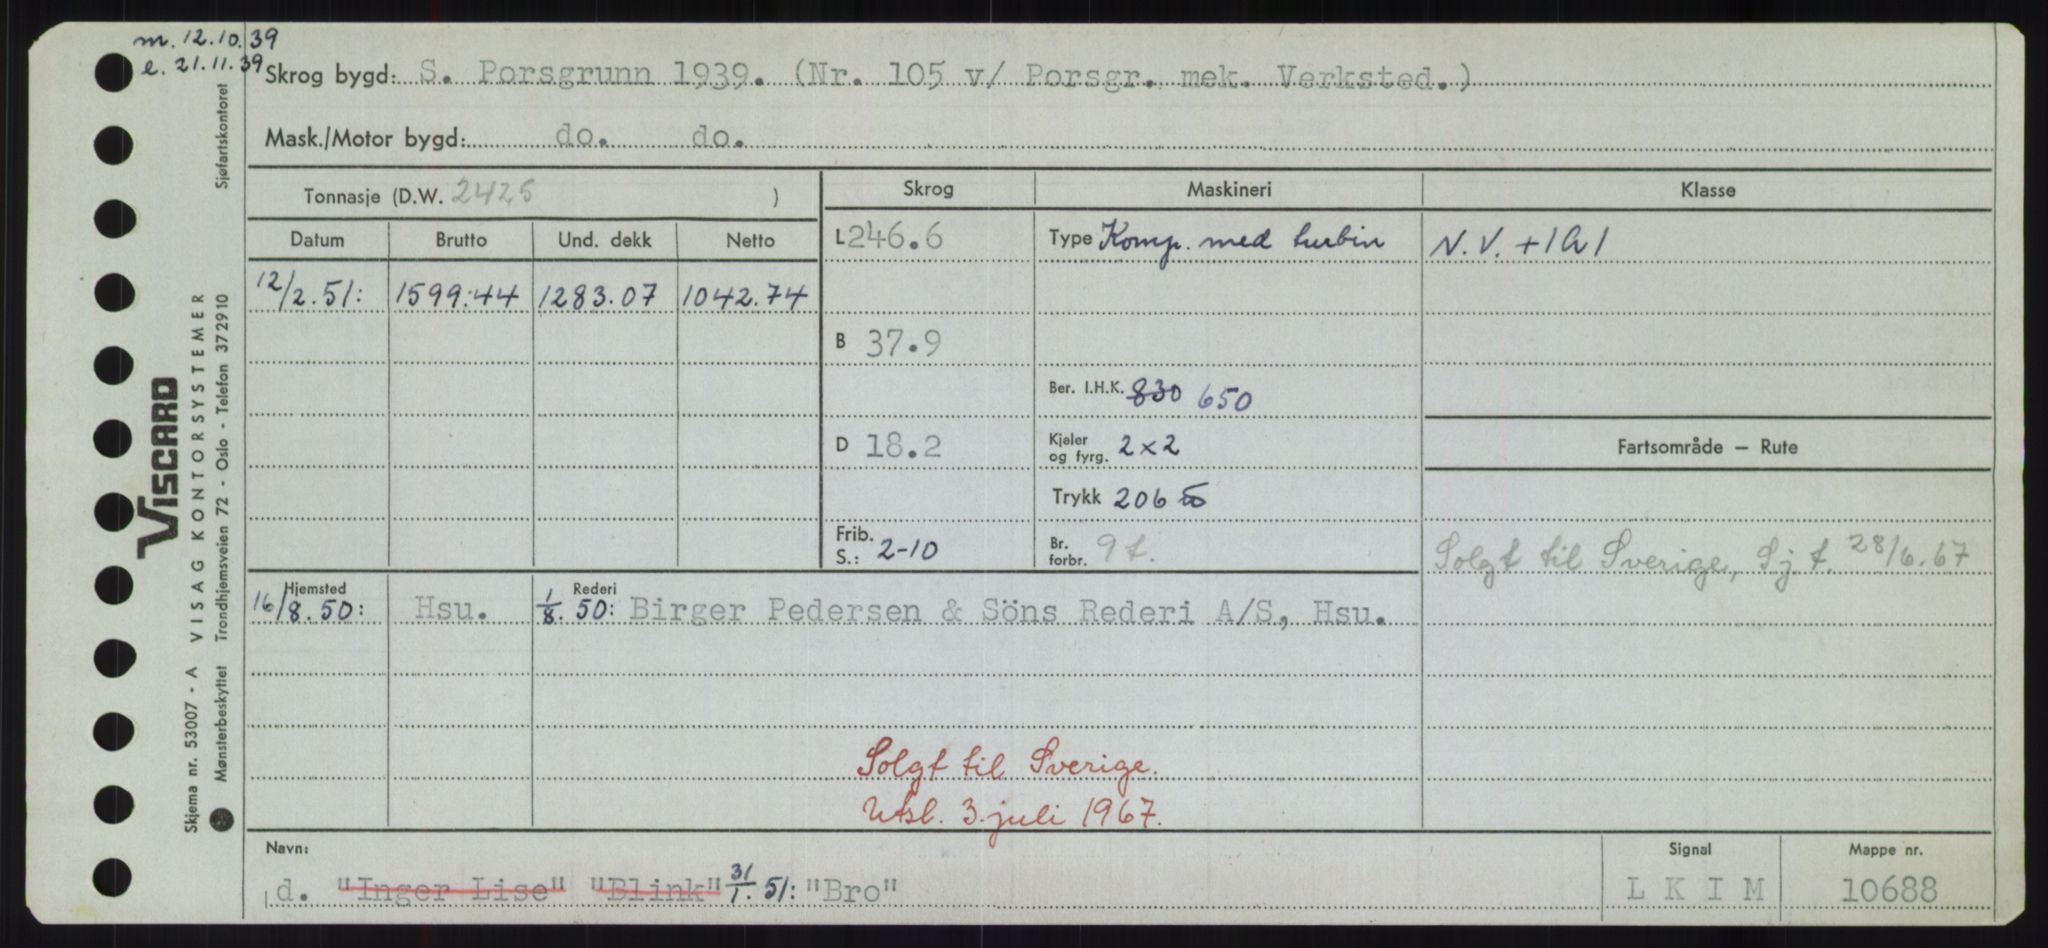 m. 12.10.39
l. 21.11.39
Skrog bygd: S. Porsgrunn 1939. (Nr. 105 v/ Porsgr. mek. Verksted.)
Mask./Motor bygd: do. do.
Tonnasje (D.W. 2425 )
Skrog
Maskineri
Klasse
Datum
Brutto
Und. dekk
Netto
L 246.6
Type Komp. med turbin
N.V. +1A1
12/2.51:
1599.44
1283.07
1042.74
B 37.9
Ber. I.H.K. 830 650
D 18.2
Kjeler og fyrg. 2x2
Fartsområde – Rute
Trykk 206
Frib. S.: 2-10
Br. forbr. 9 t.
Solgt til Sverige, Sj. t. 28/6.67
Hjemsted
Rederi
16/8.50:
Hsu.
1/8.50: Birger Pedersen & Söns Rederi A/S, Hsu.
Solgt til Sverige.
Utsl. 3. juli 1967.
Navn:
Signal
Mappe nr.
d. "Inger Lise" "Blink" 31/1.51: "Bro"
L K I M
10688
Viscard
VISAG KONTORSYSTEMER
Sjøfartskontoret
Trondhjemsveien 72 - Oslo - Telefon 372910
Skjema nr. 53007 - A
Mønsterbeskyttet